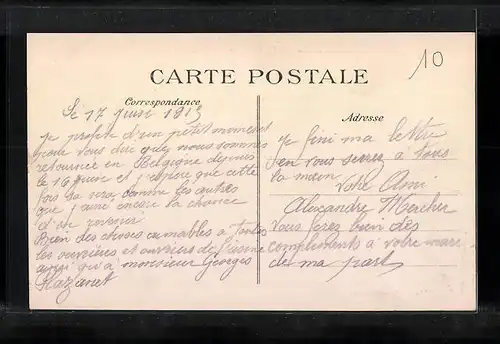 10
CARTE POSTALE
Correspondance
Adresse
Le 17 Juin 1915
je profite d'un petit moment
pour vous dire que nous sommes
retournée en Belgique depuis
le 16 Juin et j'espère que cette
fois sa sera comme les autres
que j'aurai encore la chance
d'en revenir
Bien des choses aimables a toutes
les ouvrières et ouvriers de
ainsi qu'à monsieur Georges
je fini ma lettre
en vous serrez à tous
la main
Votre Ami
Alexandre Mercier
Vous ferez bien dès
compliments à votre mari
de ma part